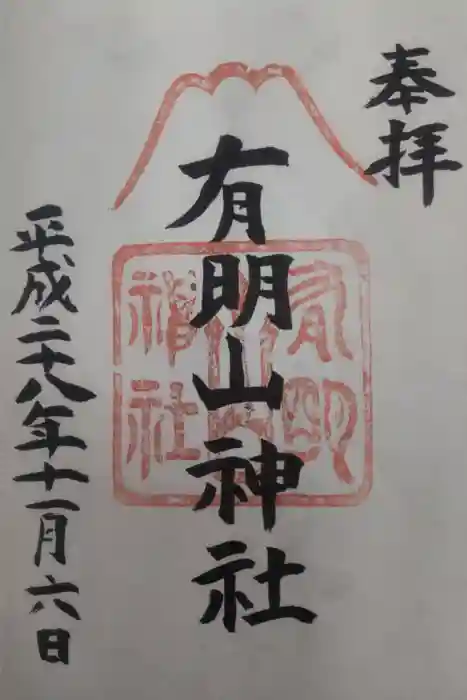 奉拝
有明山神社
平成二十八年十一月六日
有明
山
神社